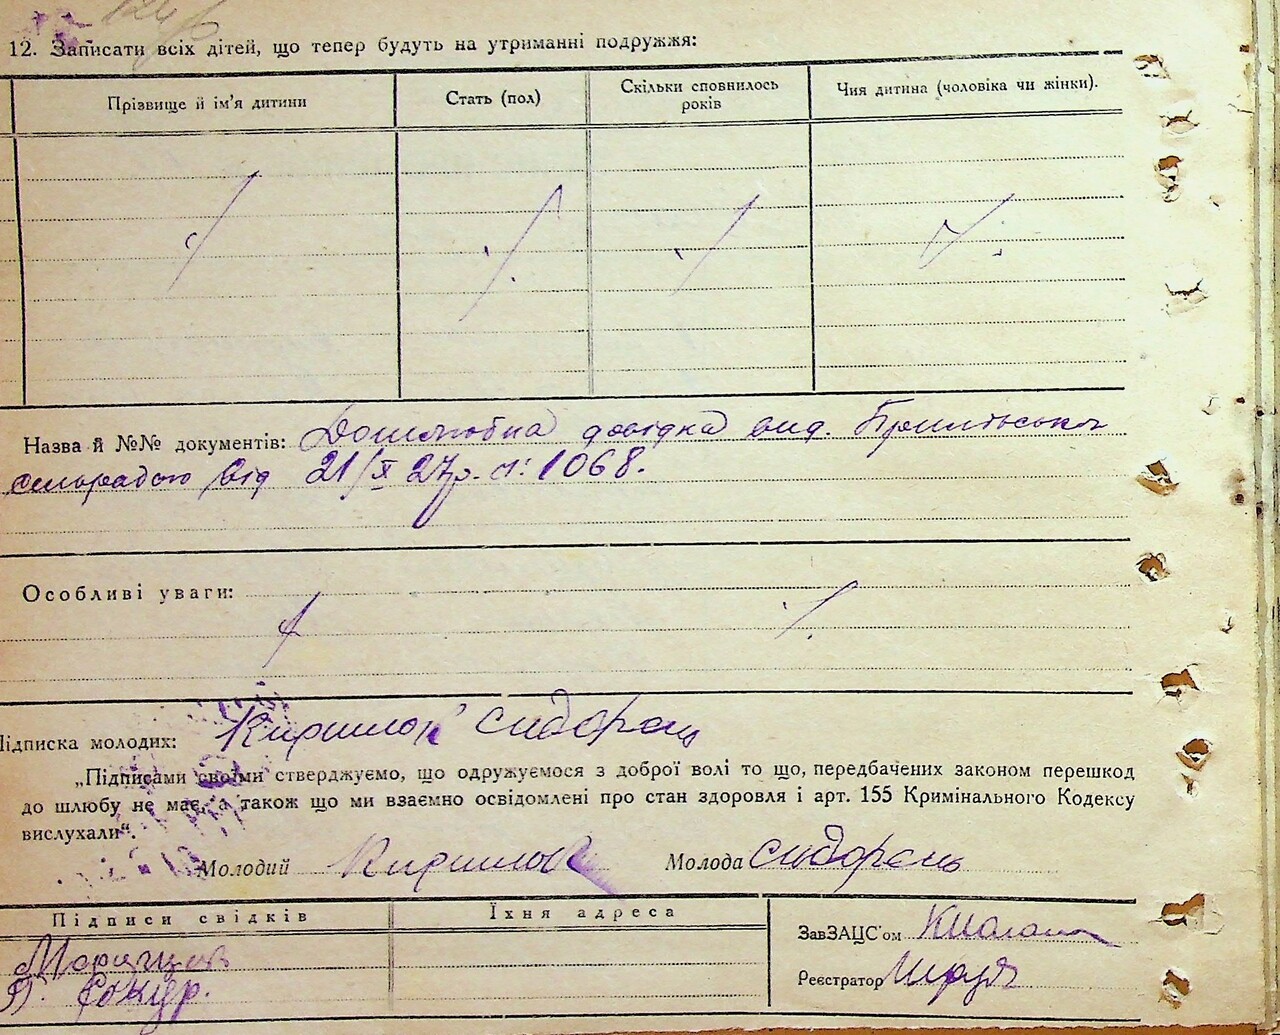 12. Записати всіх дітей, що тепер будуть на утриманні подружжя:
Прізвище й ім'я дитини
Стать (пол)
Скільки сповнилось років
Чия дитина (чоловіка чи жінки).
Назва й №№ документів: Дошлюбна довідка вид.
сельрадою від 21/X 27р. 1068.
Особливі уваги:
Підписка молодих: Кирилюк Сидорець
„Підписами своїми стверджуємо, що одружуємося з доброї волі то що, передбачених законом перешкод
до шлюбу не має, а також що ми взаємно освідомлені про стан здоровля і арт. 155 Кримінального Кодексу
вислухали“.
Молодий Молода Сидорець
Підписи свідків
Їхня адреса
ЗавЗАЦС'ом
Реєстратор